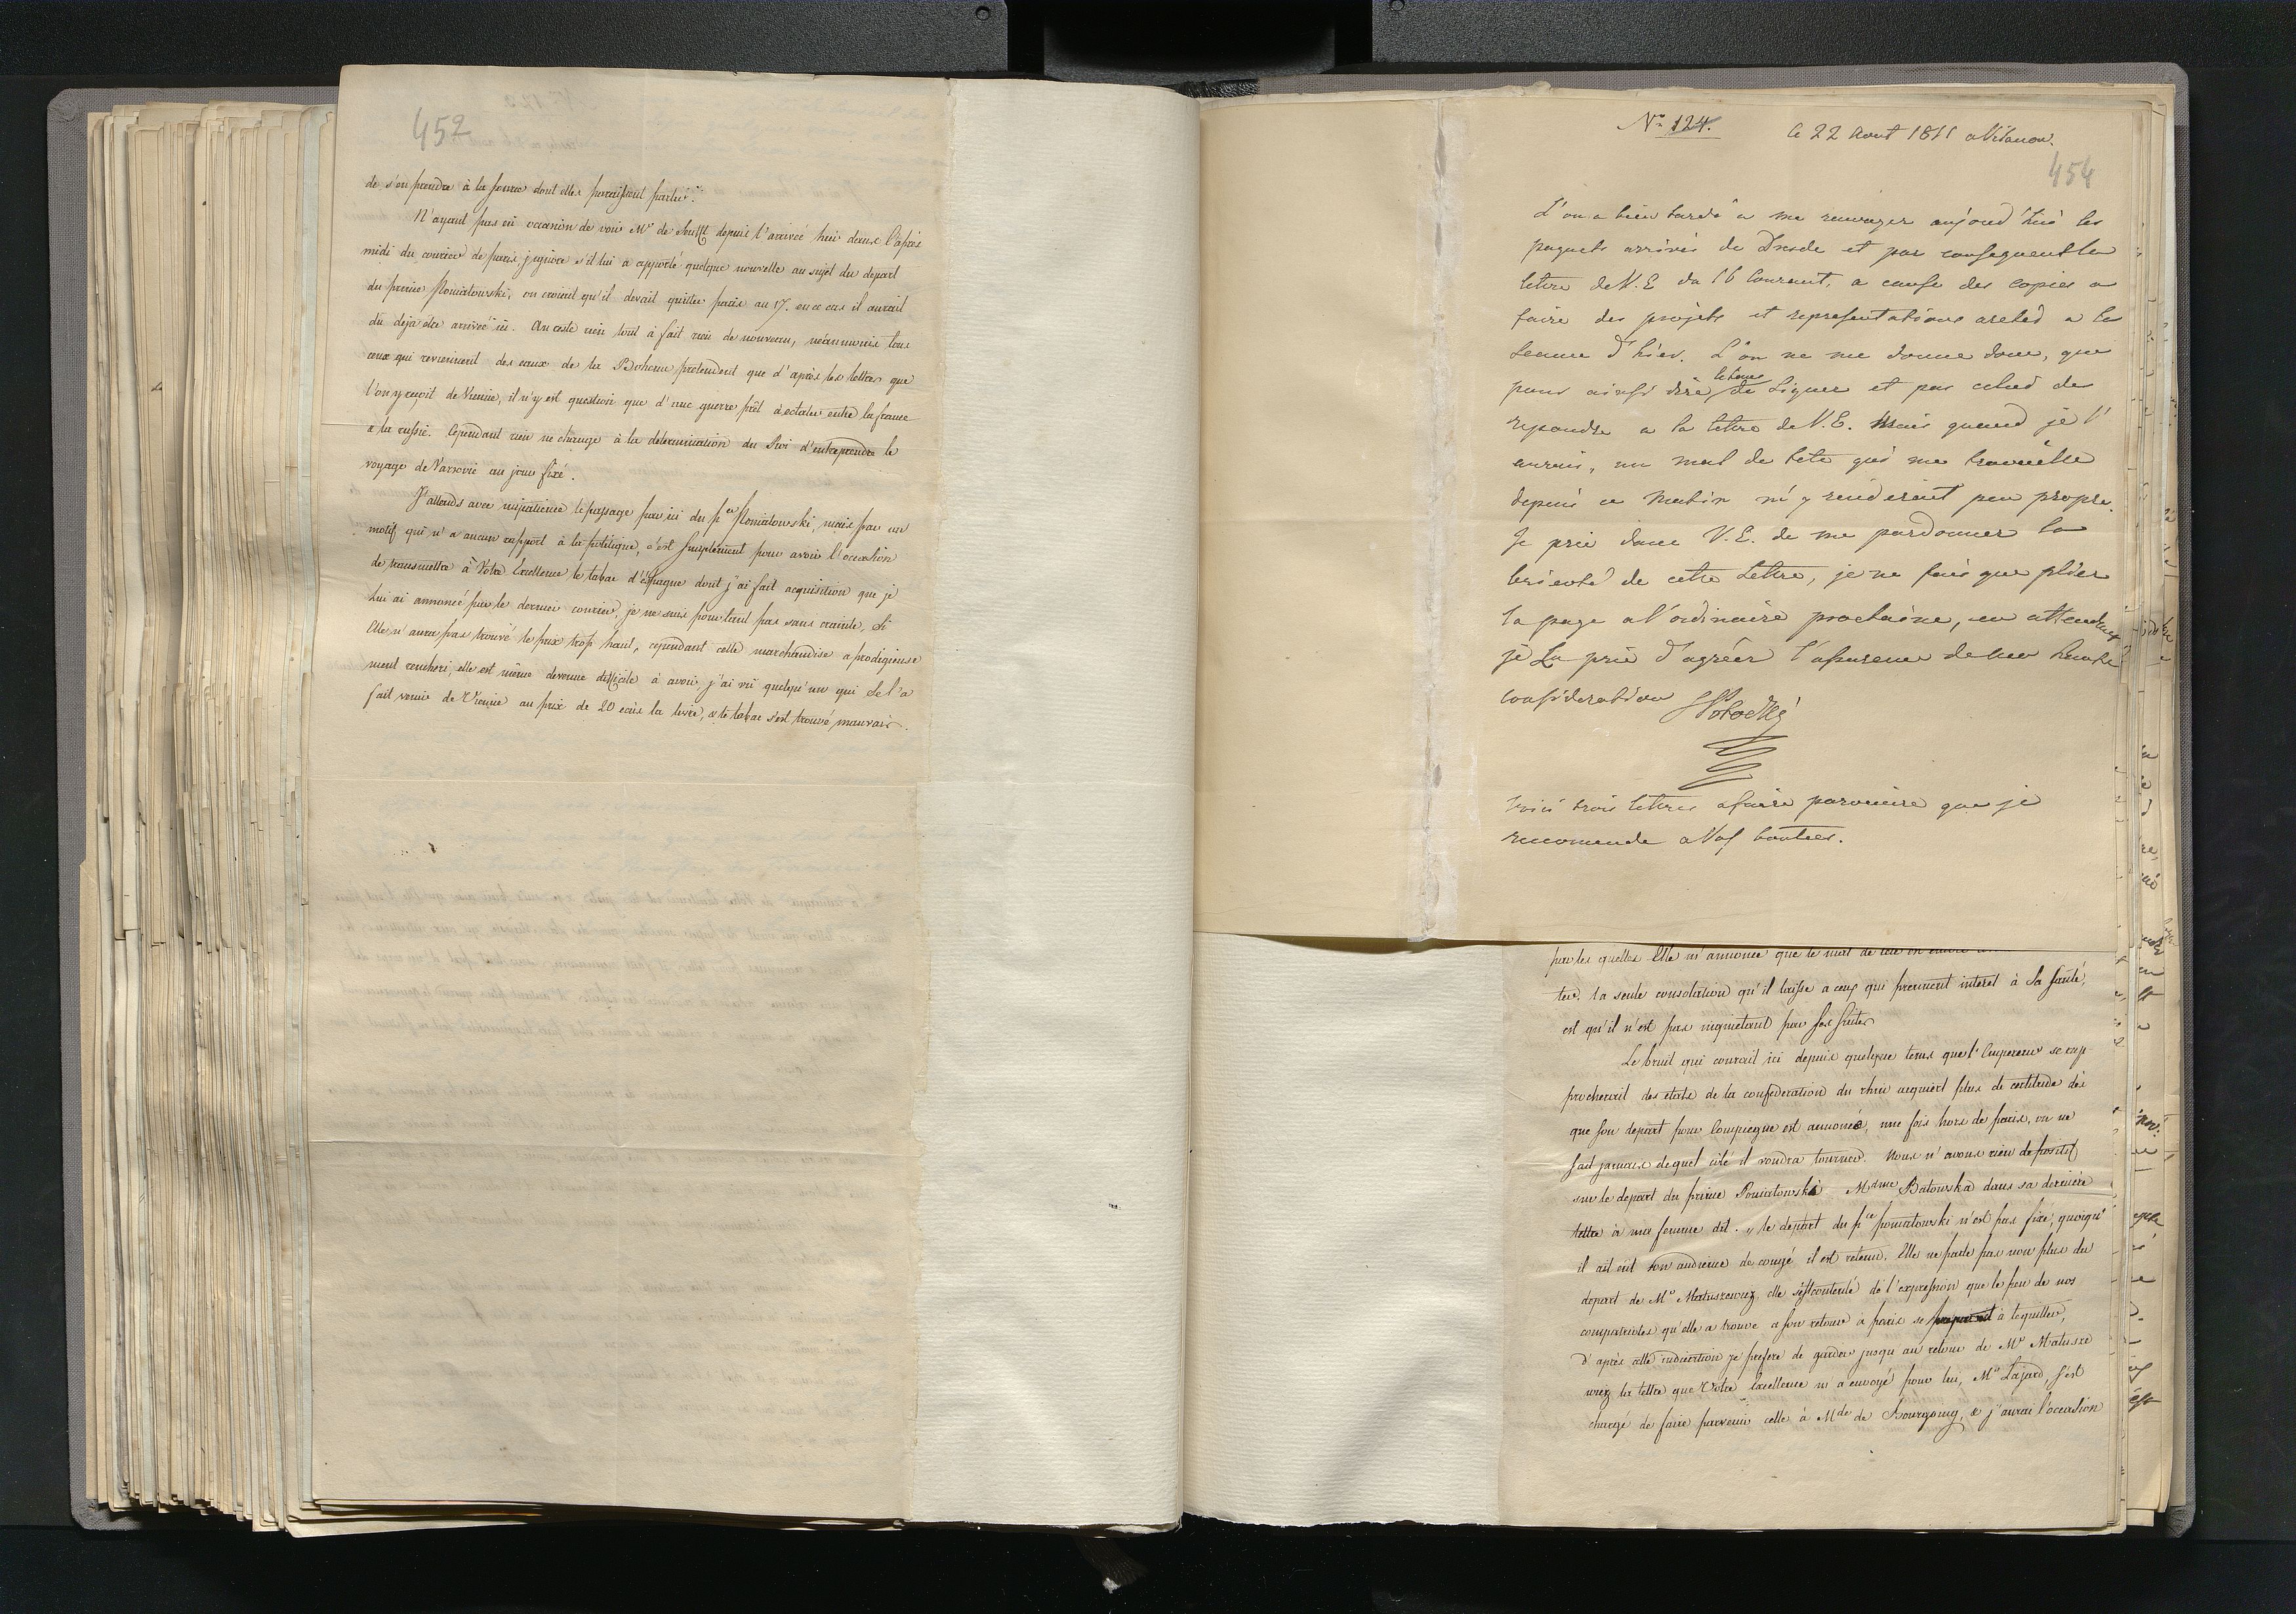 452
de s'en prendre à la source dont elles paraissent partir."
N'ayant pas eû occasion de voir Mr de Senfft depuis l'arrivée hier dans l'après
midi du courier de paris, j'ignore s'il lui a apporté quelque nouvelle au sujet du depart
du prince Poniatowski, on croioit qu'il devait quitter paris au 17. en ce cas il aurait
dû deja être arrivé ici. Au reste rien tout à fait rien de nouveau, néanmoins tous
ceux qui reviennent des eaux de la Boheme prétendent que d'après les lettres que
l'on y reçoit de Vienne, il n'y est question que d'une guerre prêt à éclater entre la france
& la russie. Cependant rien ne change à la determination du Roi d'entreprendre le
voyage de Varsovie au jour fixé.
J'attends avec impatience le passage par ici du pce Poniatowski, mais par un
motif qui n'a aucun rapport à la politique, c'est simplement pour avoir l'occasion
de transmettre à Votre Excellence le tabac d'espagne dont j'ai fait acquisition que je
lui ai annoncé par le dernier courier, je ne suis pourtant pas sans crainte, si
Elle n'aura pas trouvé le prix trop haut, cependant cette marchandise a prodigieuse
ment renchéri, elle est même devenue difficile à avoir, j'ai vû quelqu'un qui se l'a
fait venir de Vienne au prix de 20 ecûs la livre, & le tabac s'est trouvé mauvais.
No 124. le 22 Aout 1811 a Vilanow.
454
L'on a bien tardé a me renvoyer aujourd'hui les
paquets arrivés de Dresde et par consequent la
lettre de V. E du 16 Courant, a cause des copies a
faire des projets et representations aretés a la
seance d'hier. L'on ne me donne donc, que
pour ainsi dire le tems de Signer et pas celui de
repondre a la lettre de V. E. Mais quand je l'
aurais, un mal de tete qui me travaille
depuis ce matin m'y renderait peu propre.
Je prie donc V. E. de me pardonner la
brieveté de cette Lettre, je ne fais que plier
la page a l'ordinaire prochaine, en attendant
je La prie d'agréer l'assurence de ma haute
consideration SPotocki
Voici trois lettres a faire parvenire que je
recomende a Vos bontées.
par les quelles Elle m'annonce que le mal de
ter. la seule consolation qu'il laisse a ceux qui prennent interet à Sa santé,
est qu'il n'est pas inquietant par ses suites
Le bruit qui courait ici depuis quelque tems que l'Empereur se rap
procherait des etats de la confederation du rhin acquiert plus de certitude dès
que son depart pour Compiegne est annoncé, une fois hors de paris, on ne
sait jamais de quel côté il voudra tourner. Nous n'avons rien de positif
sur le depart du prince Poniatowski Mdme Batowska dans sa derniere
lettre à ma femme dit. „ le depart du pce poniatowski n'est pas fixé, quoiqu'
il ait eût son audience de congé il est retenu. Elle ne parle pas non plus du
depart de Mr Matuszewicz, elle s'est contenté de l'expression que le peu de nos
compatriotes qu'elle a trouvé a son retour à paris se preparent à le quitter,
d'après cette indication je prefere de garder jusqu au retour de Mr Matusze
wicz la lettre que Votre Excellence m'a envoyé pour lui, Mr Lajard, s'est
chargé de faire parvenir celle à Mde de Bourgoing, & j'aurai l'occasion